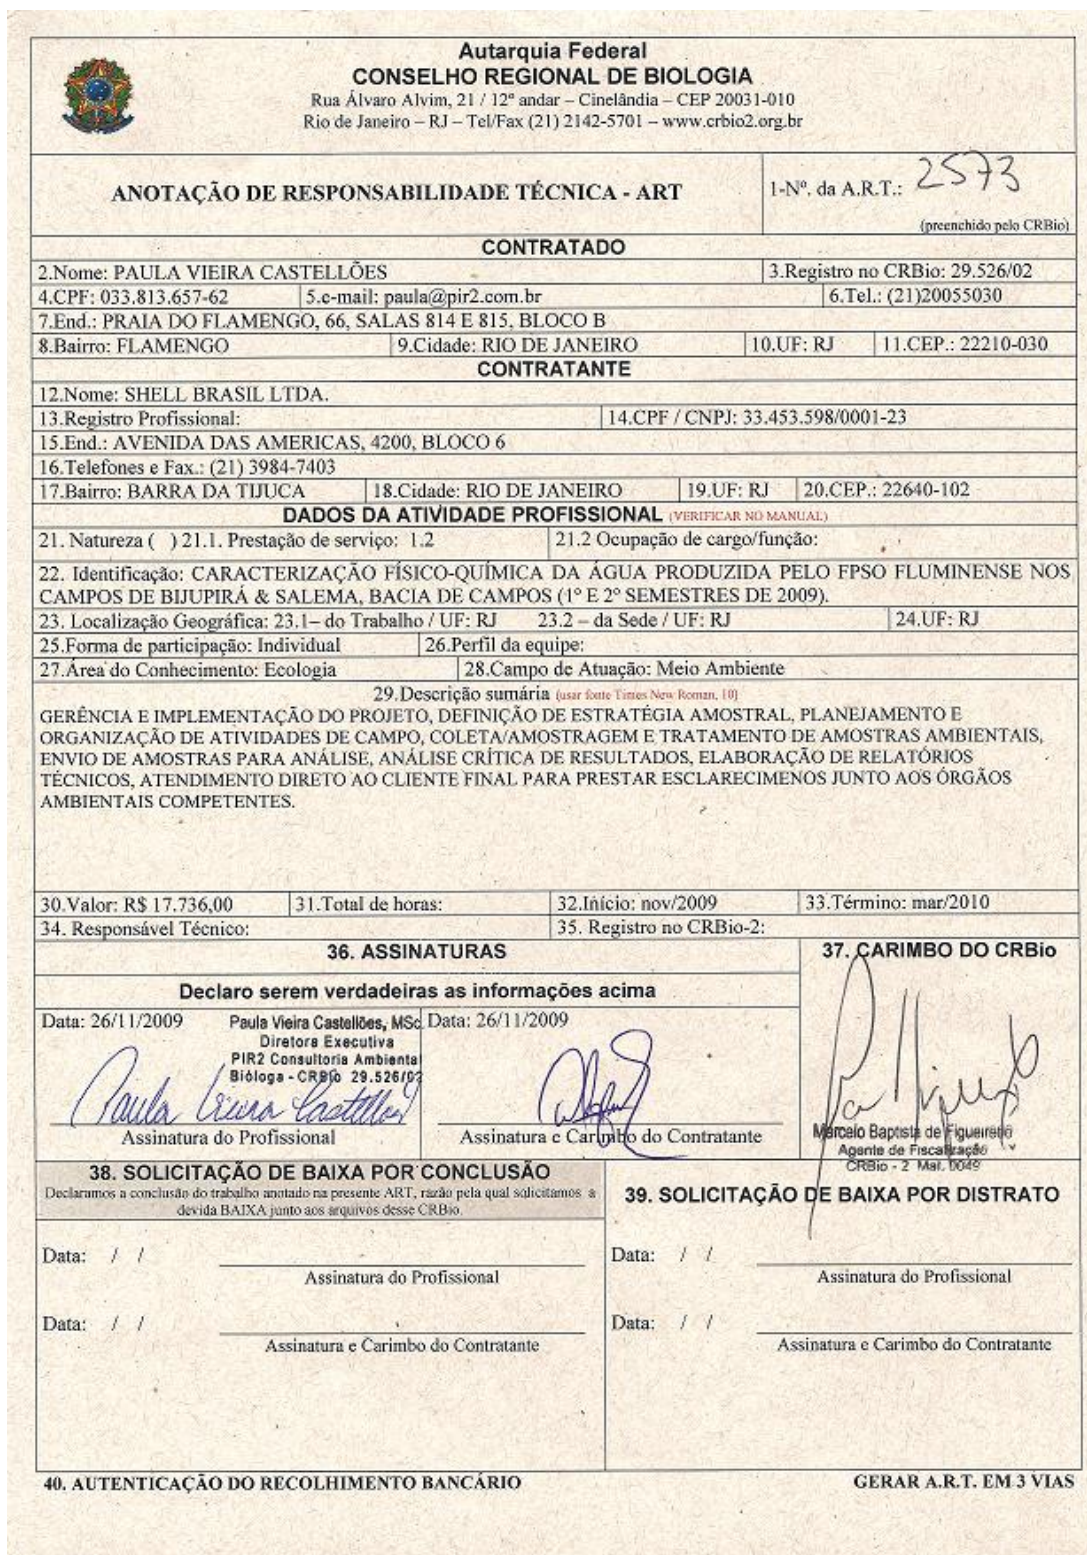 Autarquia Federal
CONSELHO REGIONAL DE BIOLOGIA
Rua Álvaro Alvim, 21 / 12º andar – Cinelândia – CEP 20031-010
Rio de Janeiro – RJ – Tel/Fax (21) 2142-5701 – www.crbio2.org.br
ANOTAÇÃO DE RESPONSABILIDADE TÉCNICA - ART
1-Nº. da A.R.T.: 2573
(preenchido pelo CRBio)
CONTRATADO
2.Nome: PAULA VIEIRA CASTELLÕES 3.Registro no CRBio: 29.526/02
4.CPF: 033.813.657-62 5.e-mail: paula@pir2.com.br 6.Tel.: (21)20055030
7.End.: PRAIA DO FLAMENGO, 66, SALAS 814 E 815, BLOCO B
8.Bairro: FLAMENGO 9.Cidade: RIO DE JANEIRO 10.UF: RJ 11.CEP.: 22210-030
CONTRATANTE
12.Nome: SHELL BRASIL LTDA.
13.Registro Profissional: 14.CPF / CNPJ: 33.453.598/0001-23
15.End.: AVENIDA DAS AMERICAS, 4200, BLOCO 6
16.Telefones e Fax.: (21) 3984-7403
17.Bairro: BARRA DA TIJUCA 18.Cidade: RIO DE JANEIRO 19.UF: RJ 20.CEP.: 22640-102
DADOS DA ATIVIDADE PROFISSIONAL (VERIFICAR NO MANUAL)
21. Natureza ( ) 21.1. Prestação de serviço: 1.2 21.2 Ocupação de cargo/função:
22. Identificação: CARACTERIZAÇÃO FÍSICO-QUÍMICA DA ÁGUA PRODUZIDA PELO FPSO FLUMINENSE NOS
CAMPOS DE BIJUPIRÁ & SALEMA, BACIA DE CAMPOS (1º E 2º SEMESTRES DE 2009).
23. Localização Geográfica: 23.1– do Trabalho / UF: RJ 23.2 – da Sede / UF: RJ 24.UF: RJ
25.Forma de participação: Individual 26.Perfil da equipe:
27.Área do Conhecimento: Ecologia 28.Campo de Atuação: Meio Ambiente
29.Descrição sumária (usar fonte Times New Roman, 10)
GERÊNCIA E IMPLEMENTAÇÃO DO PROJETO, DEFINIÇÃO DE ESTRATÉGIA AMOSTRAL, PLANEJAMENTO E
ORGANIZAÇÃO DE ATIVIDADES DE CAMPO, COLETA/AMOSTRAGEM E TRATAMENTO DE AMOSTRAS AMBIENTAIS,
ENVIO DE AMOSTRAS PARA ANÁLISE, ANÁLISE CRÍTICA DE RESULTADOS, ELABORAÇÃO DE RELATÓRIOS
TÉCNICOS, ATENDIMENTO DIRETO AO CLIENTE FINAL PARA PRESTAR ESCLARECIMENOS JUNTO AOS ÓRGÃOS
AMBIENTAIS COMPETENTES.
30.Valor: R$ 17.736,00 31.Total de horas: 32.Início: nov/2009 33.Término: mar/2010
34. Responsável Técnico: 35. Registro no CRBio-2:
36. ASSINATURAS
37. CARIMBO DO CRBio
Declaro serem verdadeiras as informações acima
Data: 26/11/2009
Paula Vieira Castellões, MSc
Diretora Executiva
PIR2 Consultoria Ambiental
Bióloga - CRBio 29.526/02
Paula Vieira Castellões
Assinatura do Profissional
Data: 26/11/2009
Assinatura e Carimbo do Contratante
Marcelo Baptista de Figueiredo
Agente de Fiscalização
CRBio - 2 Mat. 0049
38. SOLICITAÇÃO DE BAIXA POR CONCLUSÃO
Declaramos a conclusão do trabalho anotado na presente ART, razão pela qual solicitamos a
devida BAIXA junto aos arquivos desse CRBio.
Data: / /
Assinatura do Profissional
Data: / /
Assinatura e Carimbo do Contratante
39. SOLICITAÇÃO DE BAIXA POR DISTRATO
Data: / /
Assinatura do Profissional
Data: / /
Assinatura e Carimbo do Contratante
40. AUTENTICAÇÃO DO RECOLHIMENTO BANCÁRIO
GERAR A.R.T. EM 3 VIAS